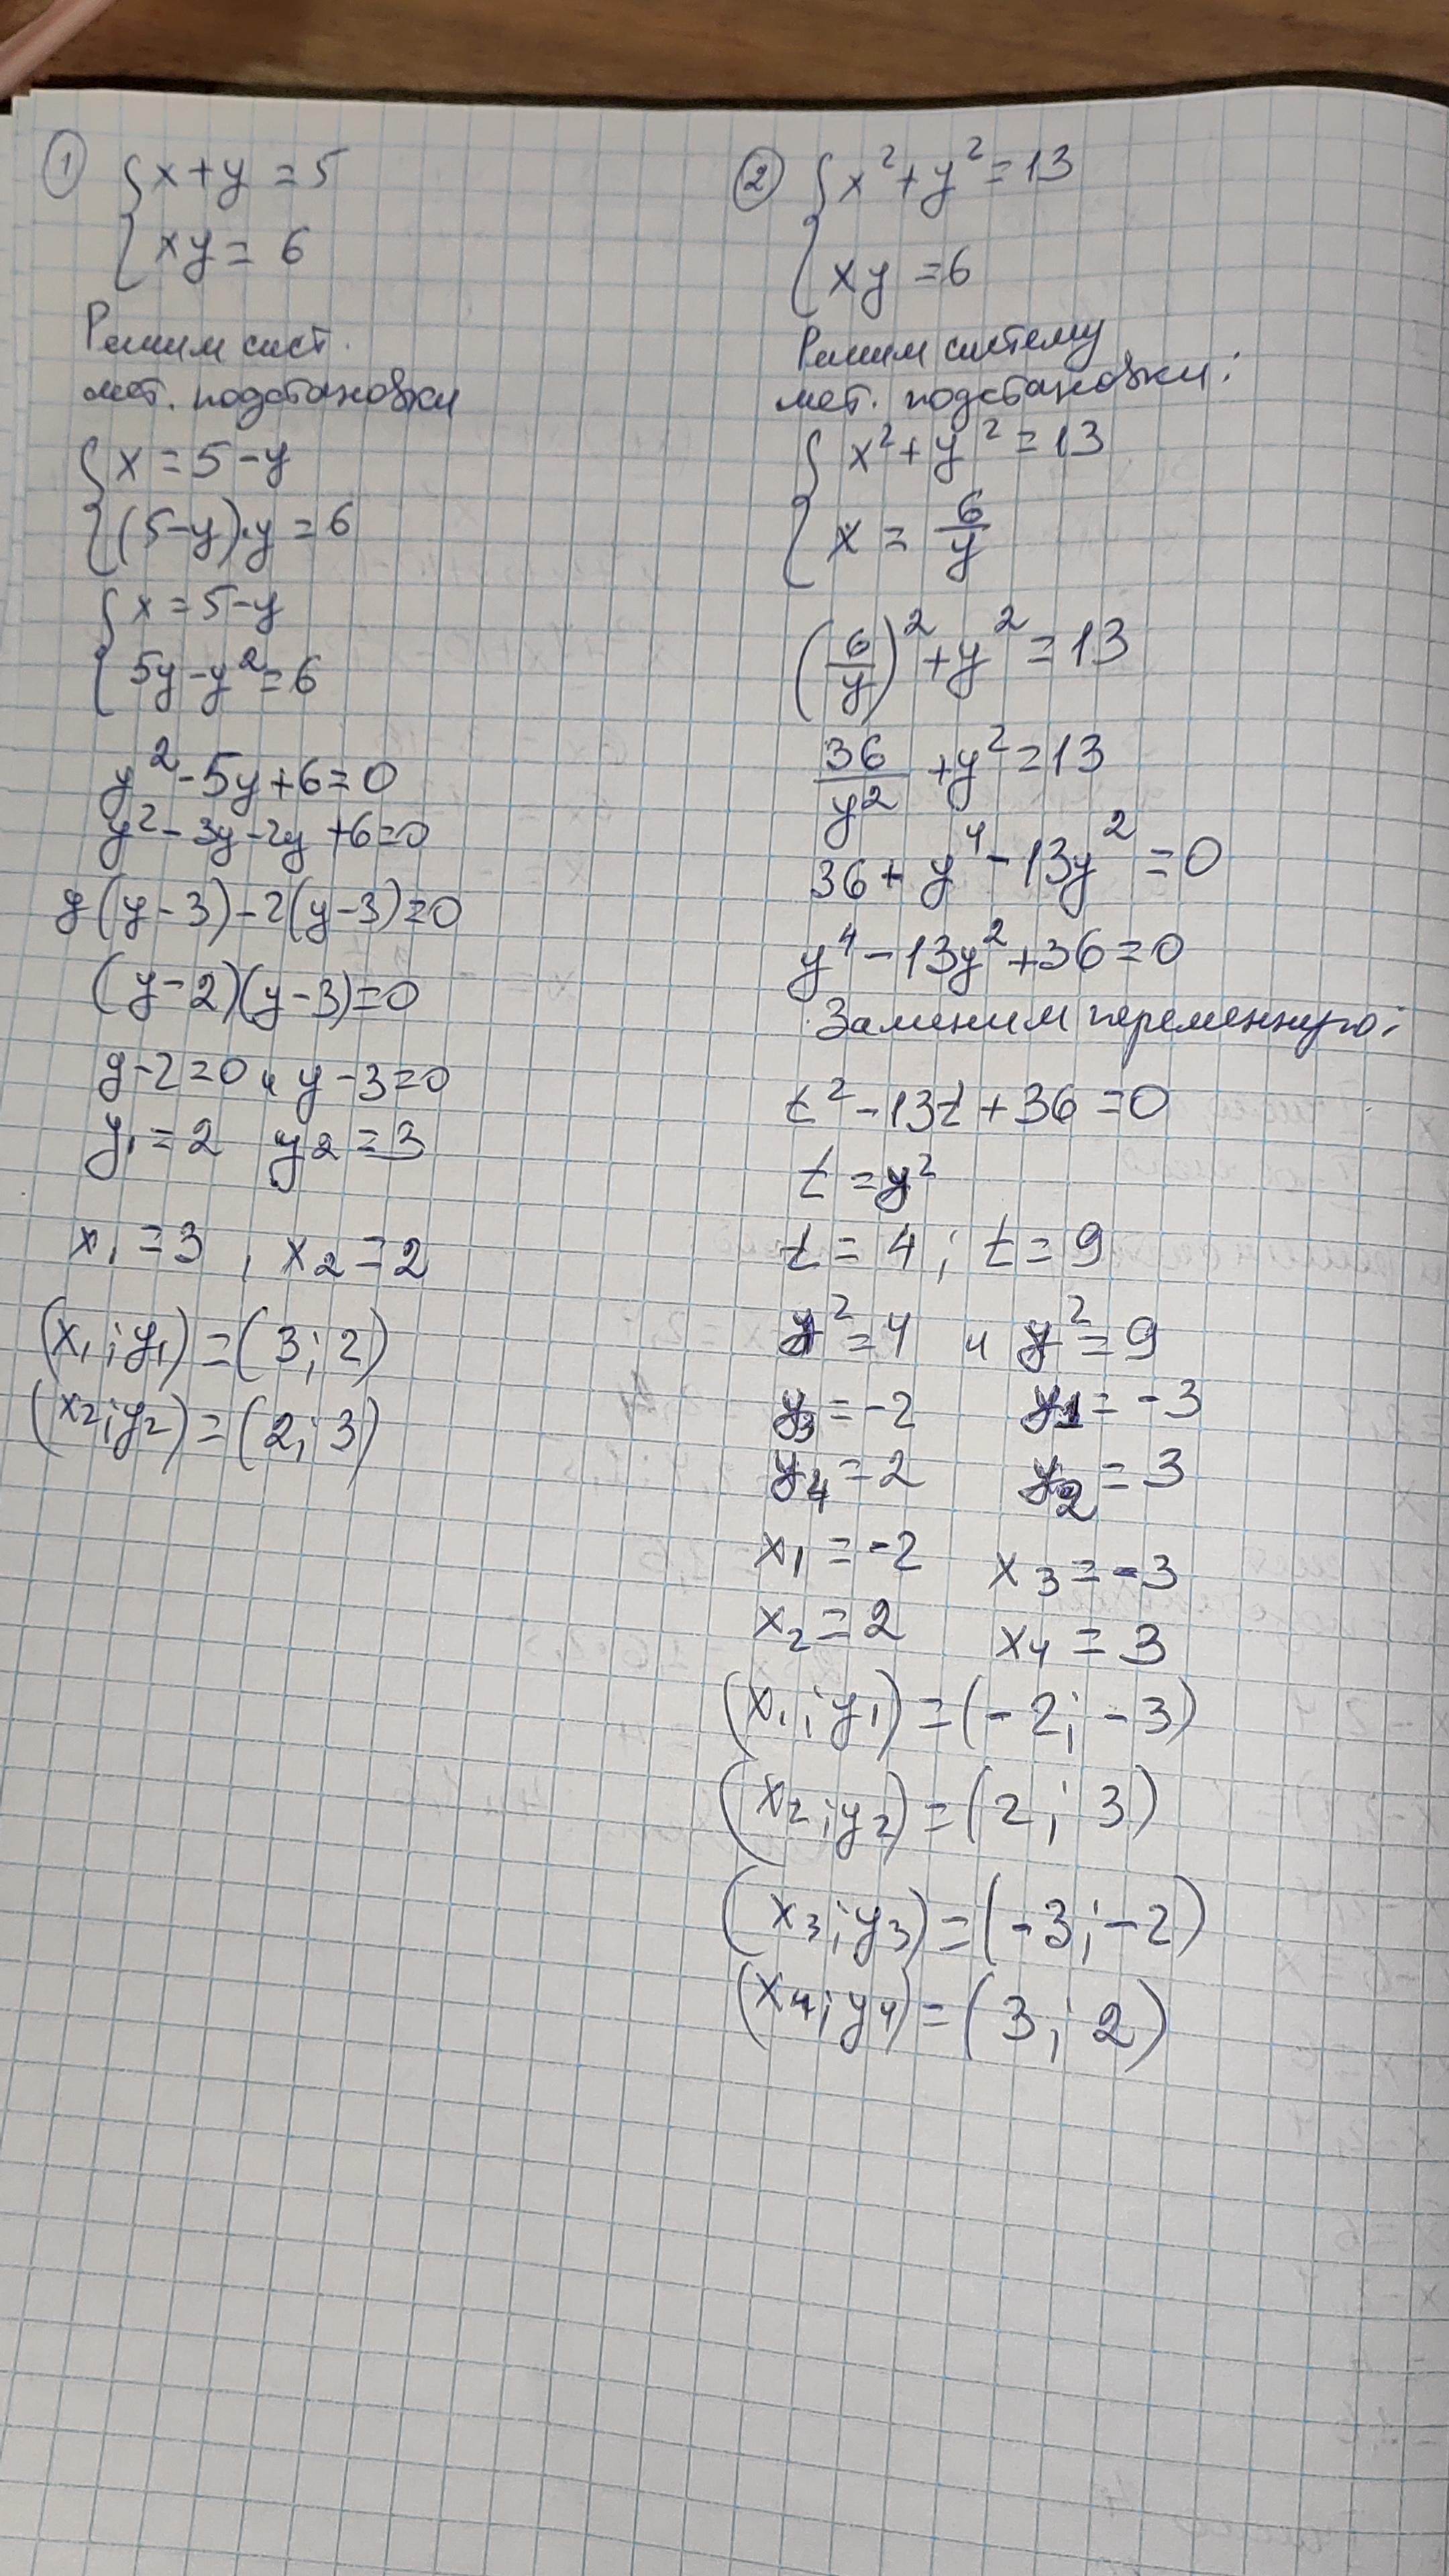 ① { x + y = 5
{ xy = 6
Решим сист.
мет. подстановки
{ x = 5 - y
{ (5-y)·y = 6
{ x = 5 - y
{ 5y - y² = 6
y² - 5y + 6 = 0
y² - 3y - 2y + 6 = 0
y(y - 3) - 2(y - 3) = 0
(y - 2)(y - 3) = 0
y - 2 = 0 и y - 3 = 0
y₁ = 2 y₂ = 3
x₁ = 3 , x₂ = 2
(x₁; y₁) = (3; 2)
(x₂; y₂) = (2; 3)
② { x² + y² = 13
{ xy = 6
Решим систему
мет. подстановки:
{ x² + y² = 13
{ x = 6/y
(6/y)² + y² = 13
36/y² + y² = 13
36 + y⁴ - 13y² = 0
y⁴ - 13y² + 36 = 0
Заменим переменную:
t² - 13t + 36 = 0
t = y²
t = 4 ; t = 9
y² = 4 и y² = 9
y₃ = -2 y₁ = -3
y₄ = 2 y₂ = 3
x₁ = -2 x₃ = -3
x₂ = 2 x₄ = 3
(x₁; y₁) = (-2; -3)
(x₂; y₂) = (2; 3)
(x₃; y₃) = (-3; -2)
(x₄; y₄) = (3; 2)